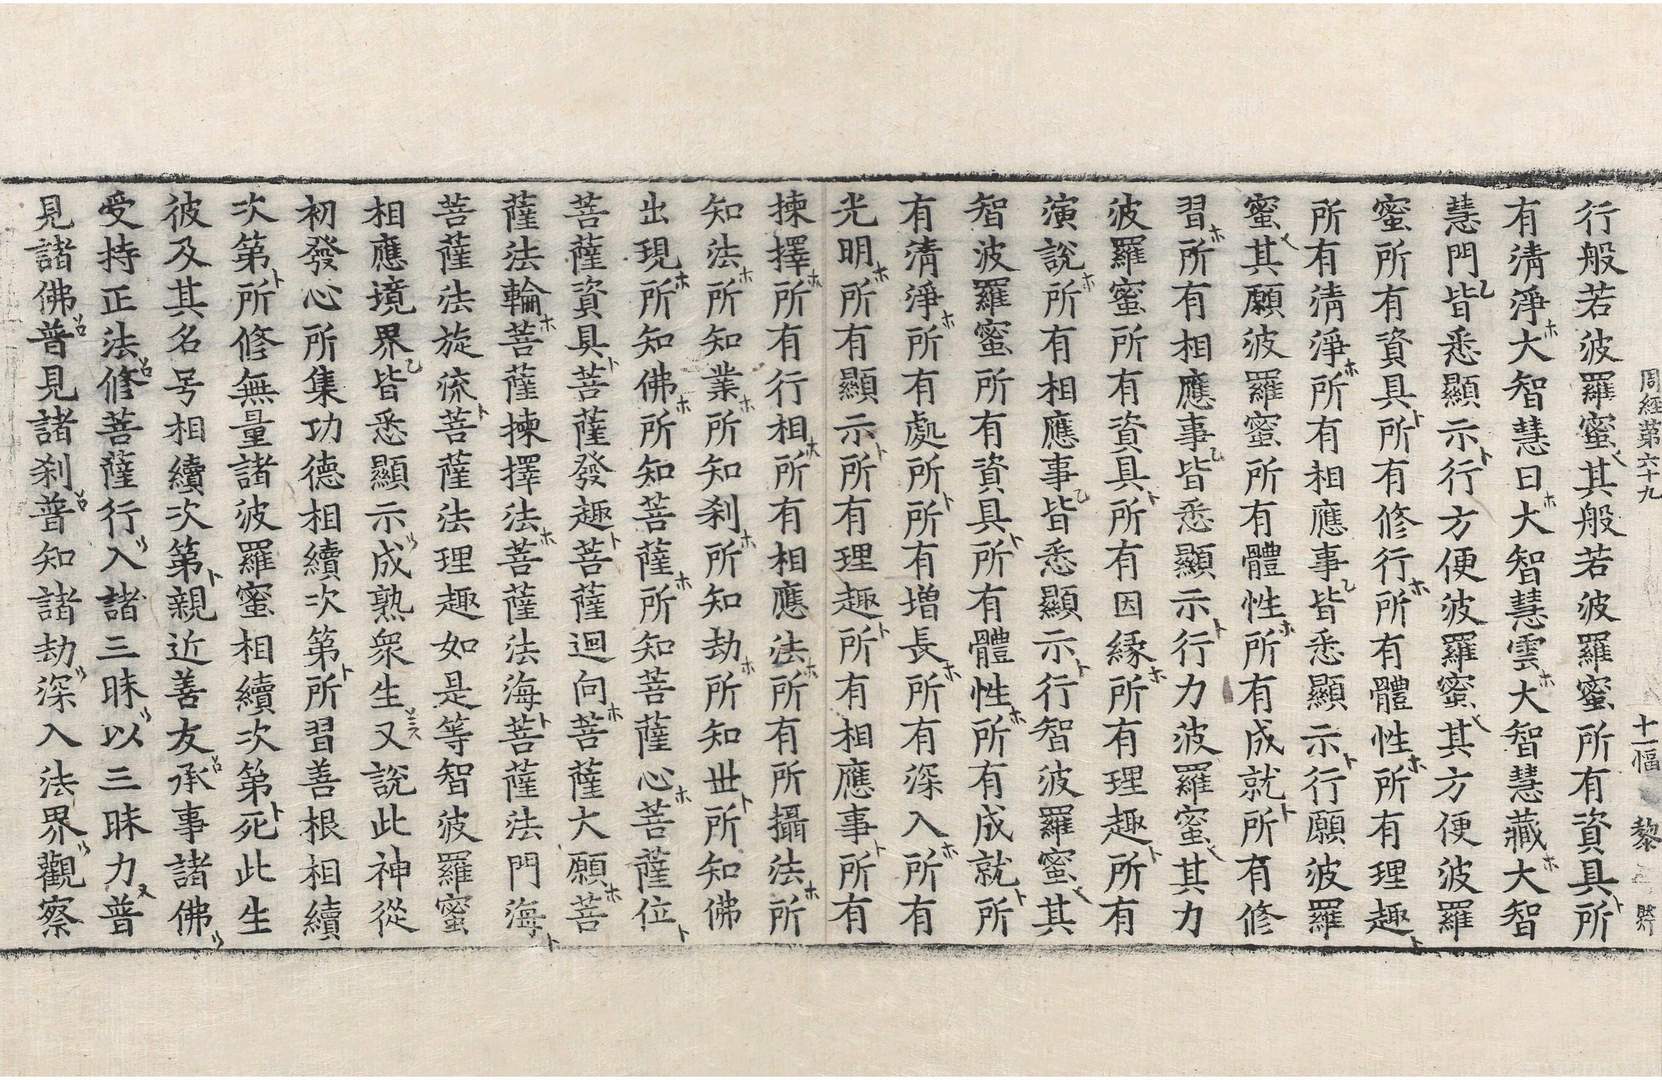 周經第六十九 十一幅 黎
行般若波羅蜜其般若波羅蜜所有資具所
有清淨大智慧日大智慧雲大智慧藏大智
慧門皆悉顯示行方便波羅蜜其方便波羅
蜜所有資具所有修行所有體性所有理趣
所有清淨所有相應事皆悉顯示行願波羅
蜜其願波羅蜜所有體性所有成就所有修
習所有相應事皆悉顯示行力波羅蜜其力
波羅蜜所有資具所有因緣所有理趣所有
演說所有相應事皆悉顯示行智波羅蜜其
智波羅蜜所有資具所有體性所有成就所
有清淨所有處所所有增長所有深入所有
光明所有顯示所有理趣所有相應事所有
揀擇所有行相所有相應法所有所攝法所
知法所知業所知刹所知劫所知丗所知佛
出現所知佛所知菩薩所知菩薩心菩薩位
菩薩資具菩薩發趣菩薩迴向菩薩大願菩
薩法輪菩薩揀擇法菩薩法海菩薩法門海
菩薩法旋流菩薩法理趣如是等智波羅蜜
相應境界皆悉顯示成熟衆生又說此神從
初發心所集功德相續次第所習善根相續
次第所修無量諸波羅蜜相續次第死此生
彼及其名号相續次第親近善友承事諸佛
受持正法修菩薩行入諸三昧以三昧力普
見諸佛普見諸刹普知諸劫深入法界觀察